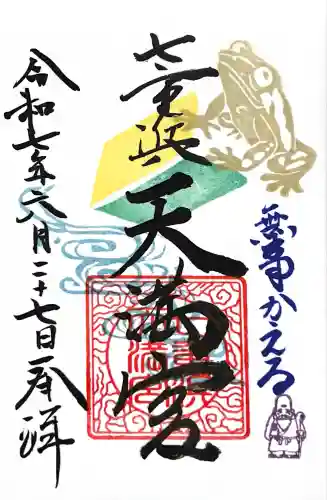 無事かえる
天満宮
令和七年六月二十七日 奉拝